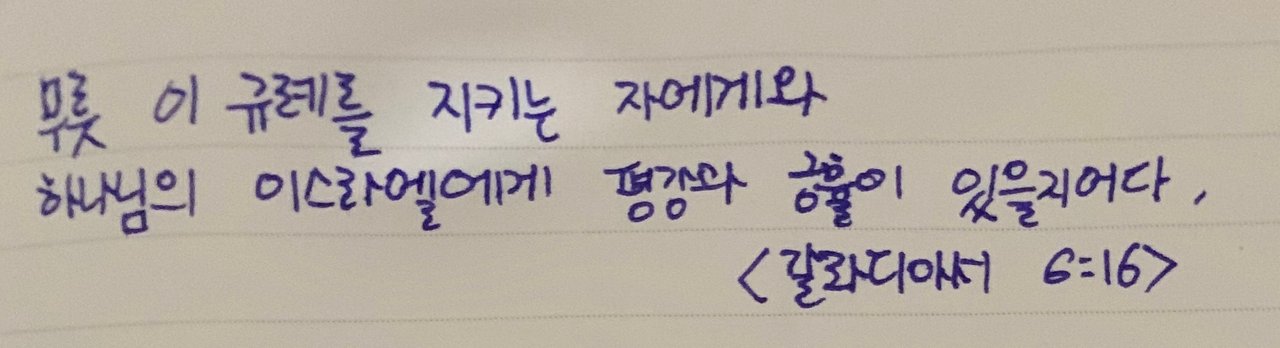 무릇 이 규례를 지키는 자에게와
하나님의 이스라엘에게 평강과 긍휼이 있을지어다.
<갈라디아서 6:16>